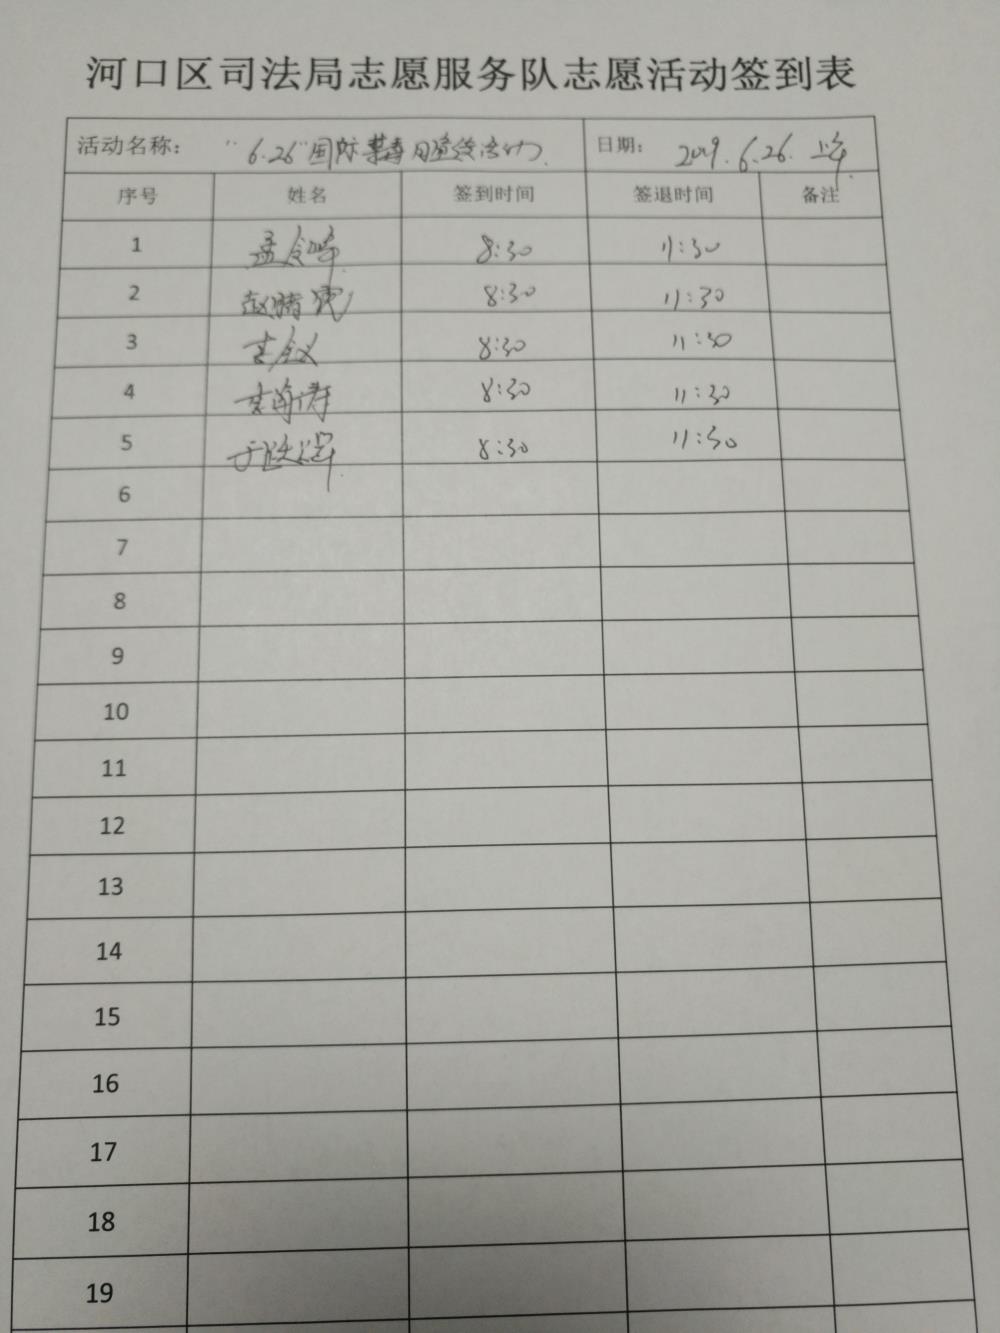 河口区司法局志愿服务队志愿活动签到表
活动名称： "6.26"国际禁毒日宣传活动 日期： 2019.6.26.上午
序号 姓名 签到时间 签退时间 备注
1 8:30 11:30
2 8:30 11:30
3 8:30 11:30
4 8:30 11:30
5 8:30 11:30
6
7
8
9
10
11
12
13
14
15
16
17
18
19